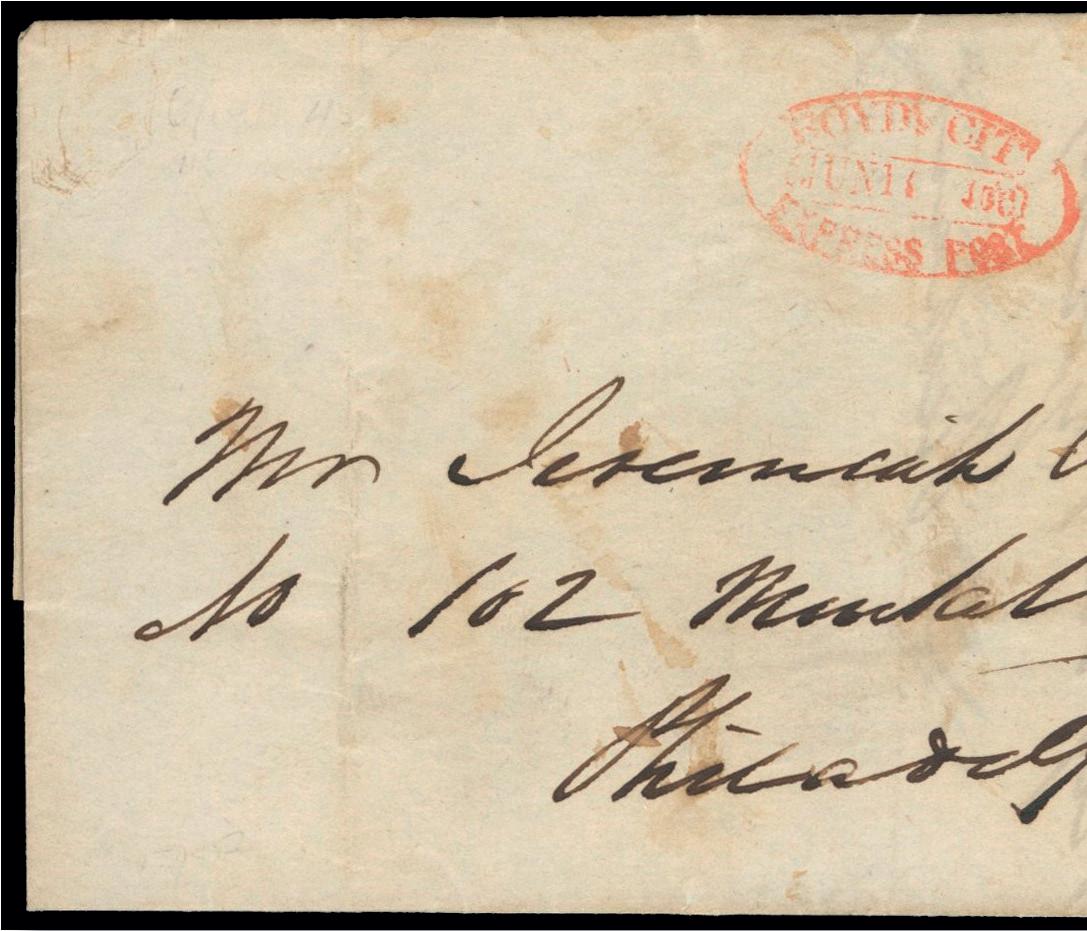 BOYD'S CIT
JUN 1
EXPRESS POST
Mr Jeremiah
No 102 Market
Philadelp